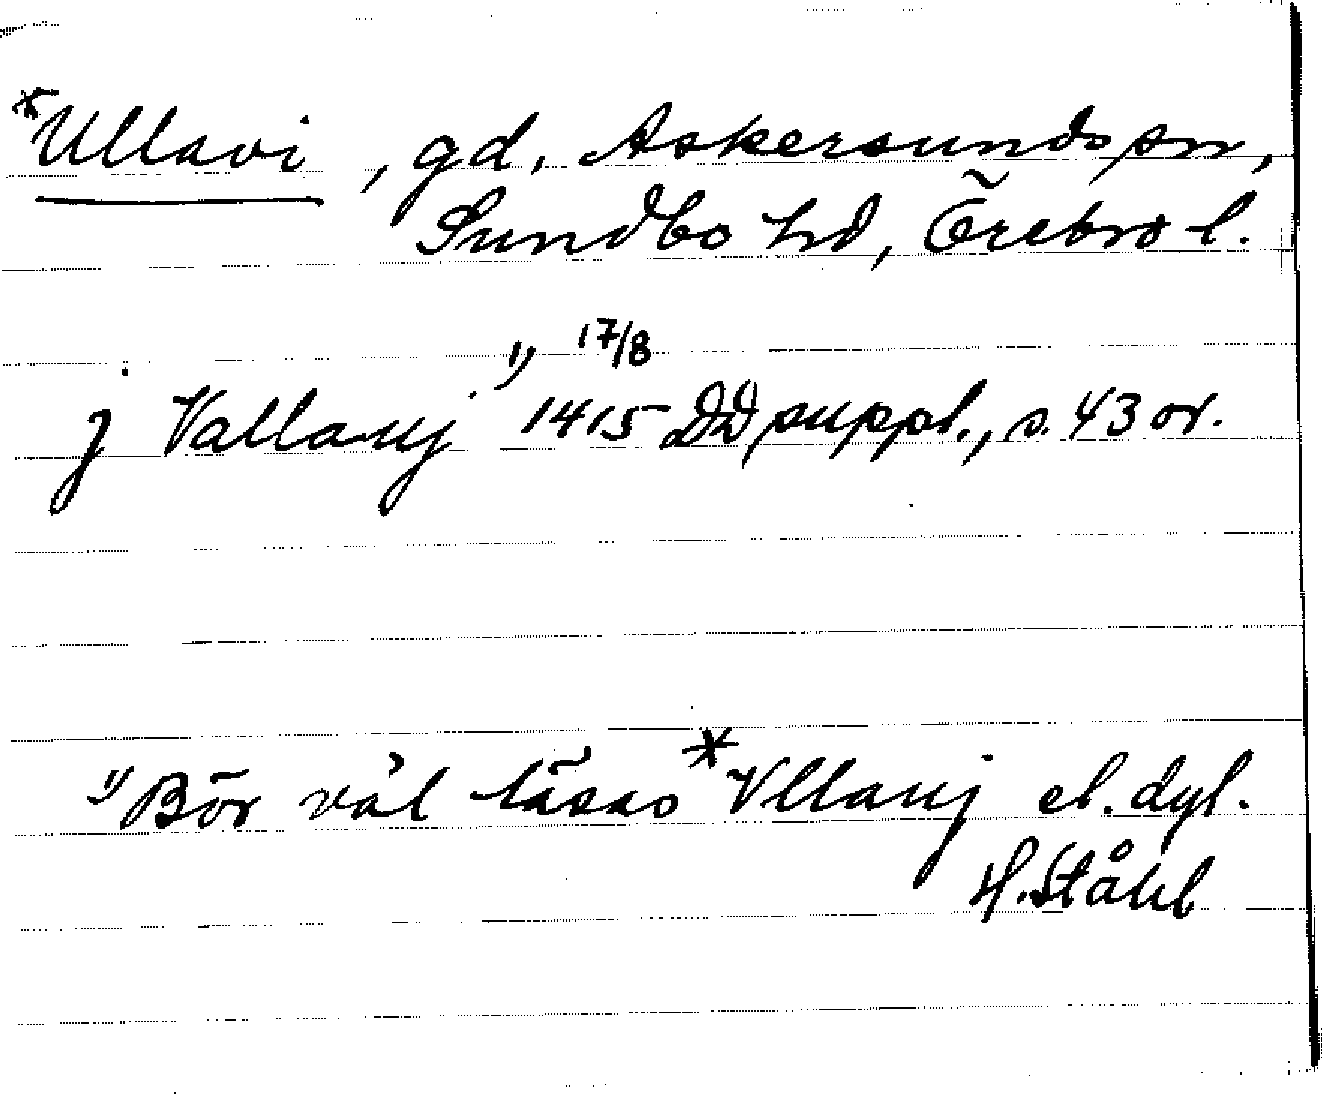 *Ullavi, gd, Askersunds sn,
Sundbo hd, Örebro l.
j Vallauj 1) 17/8 1415 DD suppl., s. 43 or.
1) Bör väl läsas *Vllauj el. dyl.
H. Ståhl